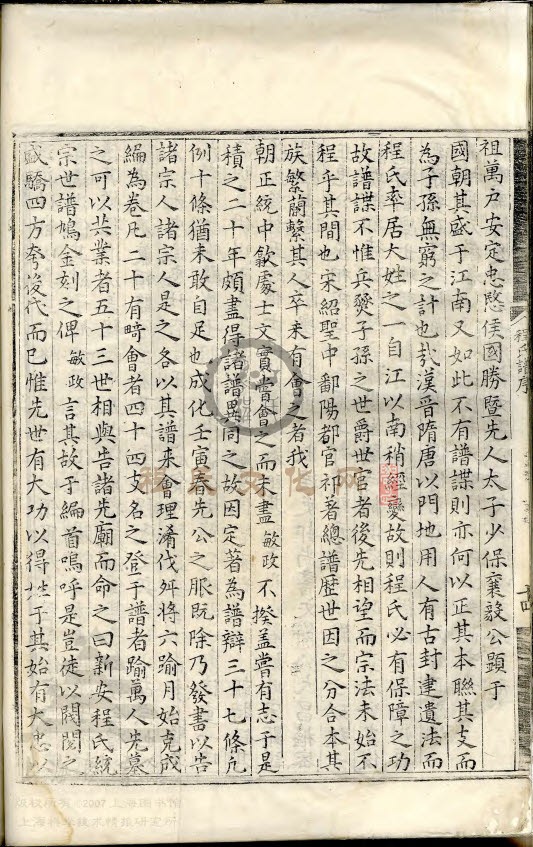 祖萬户安定忠愍佳國勝暨先人太子少保襄毅公顯于
國朝其盛于江南又如此不有譜諜則亦何以正其本聯其支而
為子孫無窮之計也哉漢晉隋唐以門地用人有古封建遺法而
程氏率居大姓之一自江以南稍經變故則程氏必有保障之功
故譜諜不惟兵燹子孫之世爵世官者後先相望而宗法未始不
程乎其間也宋紹聖中鄱陽都官祁著總譜歴世因之分合本其
族繁蘭繫其人卒未有會之者我
朝正統中歙處士文實嘗會之而未盡敏政不揆盖嘗有志于是
積之二十年頗盡得諸譜異同之故因定著為譜辯三十七條凡
例十條猶未敢自足也成化壬寅春先公之服既除乃發書以告
諸宗人諸宗人是之各以其譜来會理淆伐舛將六踰月始克成
編為卷凡二十有畸會者四十四支名之登于譜者踰萬人先墓
之可以共業者五十三世相與告諸先廟而命之曰新安程氏統
宗世譜鳩金刻之俾敏政言其故于編首嗚呼是豈徒以閥閱之
盛驕四方夸後代而已惟先世有大功以得姓于其始有大忠以
程氏譜序
版权所有©2007上海图书馆
上海科学技术情报研究所